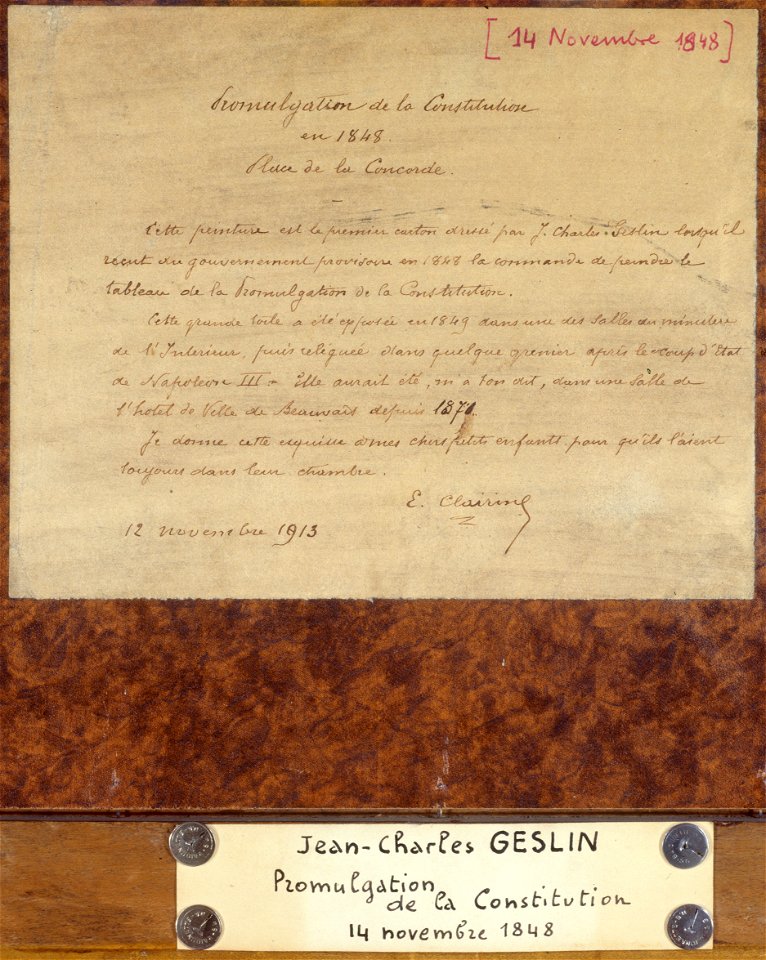 [14 Novembre 1848]
Promulgation de la Constitution
en 1848.
Place de la Concorde.
Cette peinture est le premier carton dressé par J. Charles-Geslin lorsqu'il
reçut du gouvernement provisoire en 1848 la commande de peindre le
tableau de la Promulgation de la Constitution.
Cette grande toile a été exposée en 1849 dans une des salles du ministère
de l'Interieur, puis reléguée dans quelque grenier après le coup d'Etat
de Napoléon III - Elle aurait été, m'a t'on dit, dans une Salle de
l'hotel de Ville de Beauvais depuis 1871.
Je donne cette esquisse à mes chers petits enfants pour qu'ils l'aient
toujours dans leur chambre.
E. Clairin
12 novembre 1913
Jean-Charles GESLIN
Promulgation
de la Constitution
14 novembre 1848